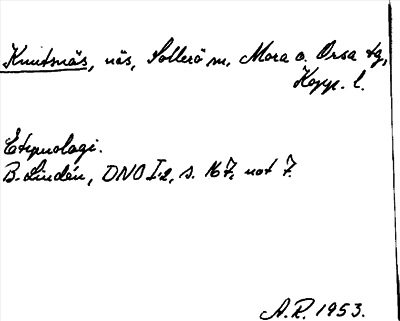 Knutsnäs, näs, Sollerö sn, Mora o. Orsa tg,
Kopp. l.
Etymologi.
B. Lindén, DNO I:2, s. 167, not 7.
A.R. 1953.